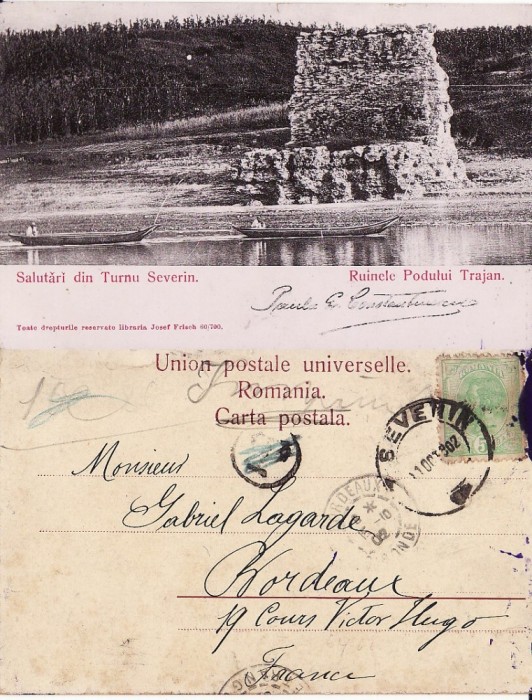 Salutări din Turnu Severin.
Ruinele Podului Trajan.
Toate drepturile reservate libraria Josef Frisch 60/590.
Union postale universelle.
Romania.
Carta postala.
ROMANIA
5
SEVERIN
11 OCT 902
Monsieur
Gabriel Lagarde
Bordeaux
19 Cours Victor Hugo
France